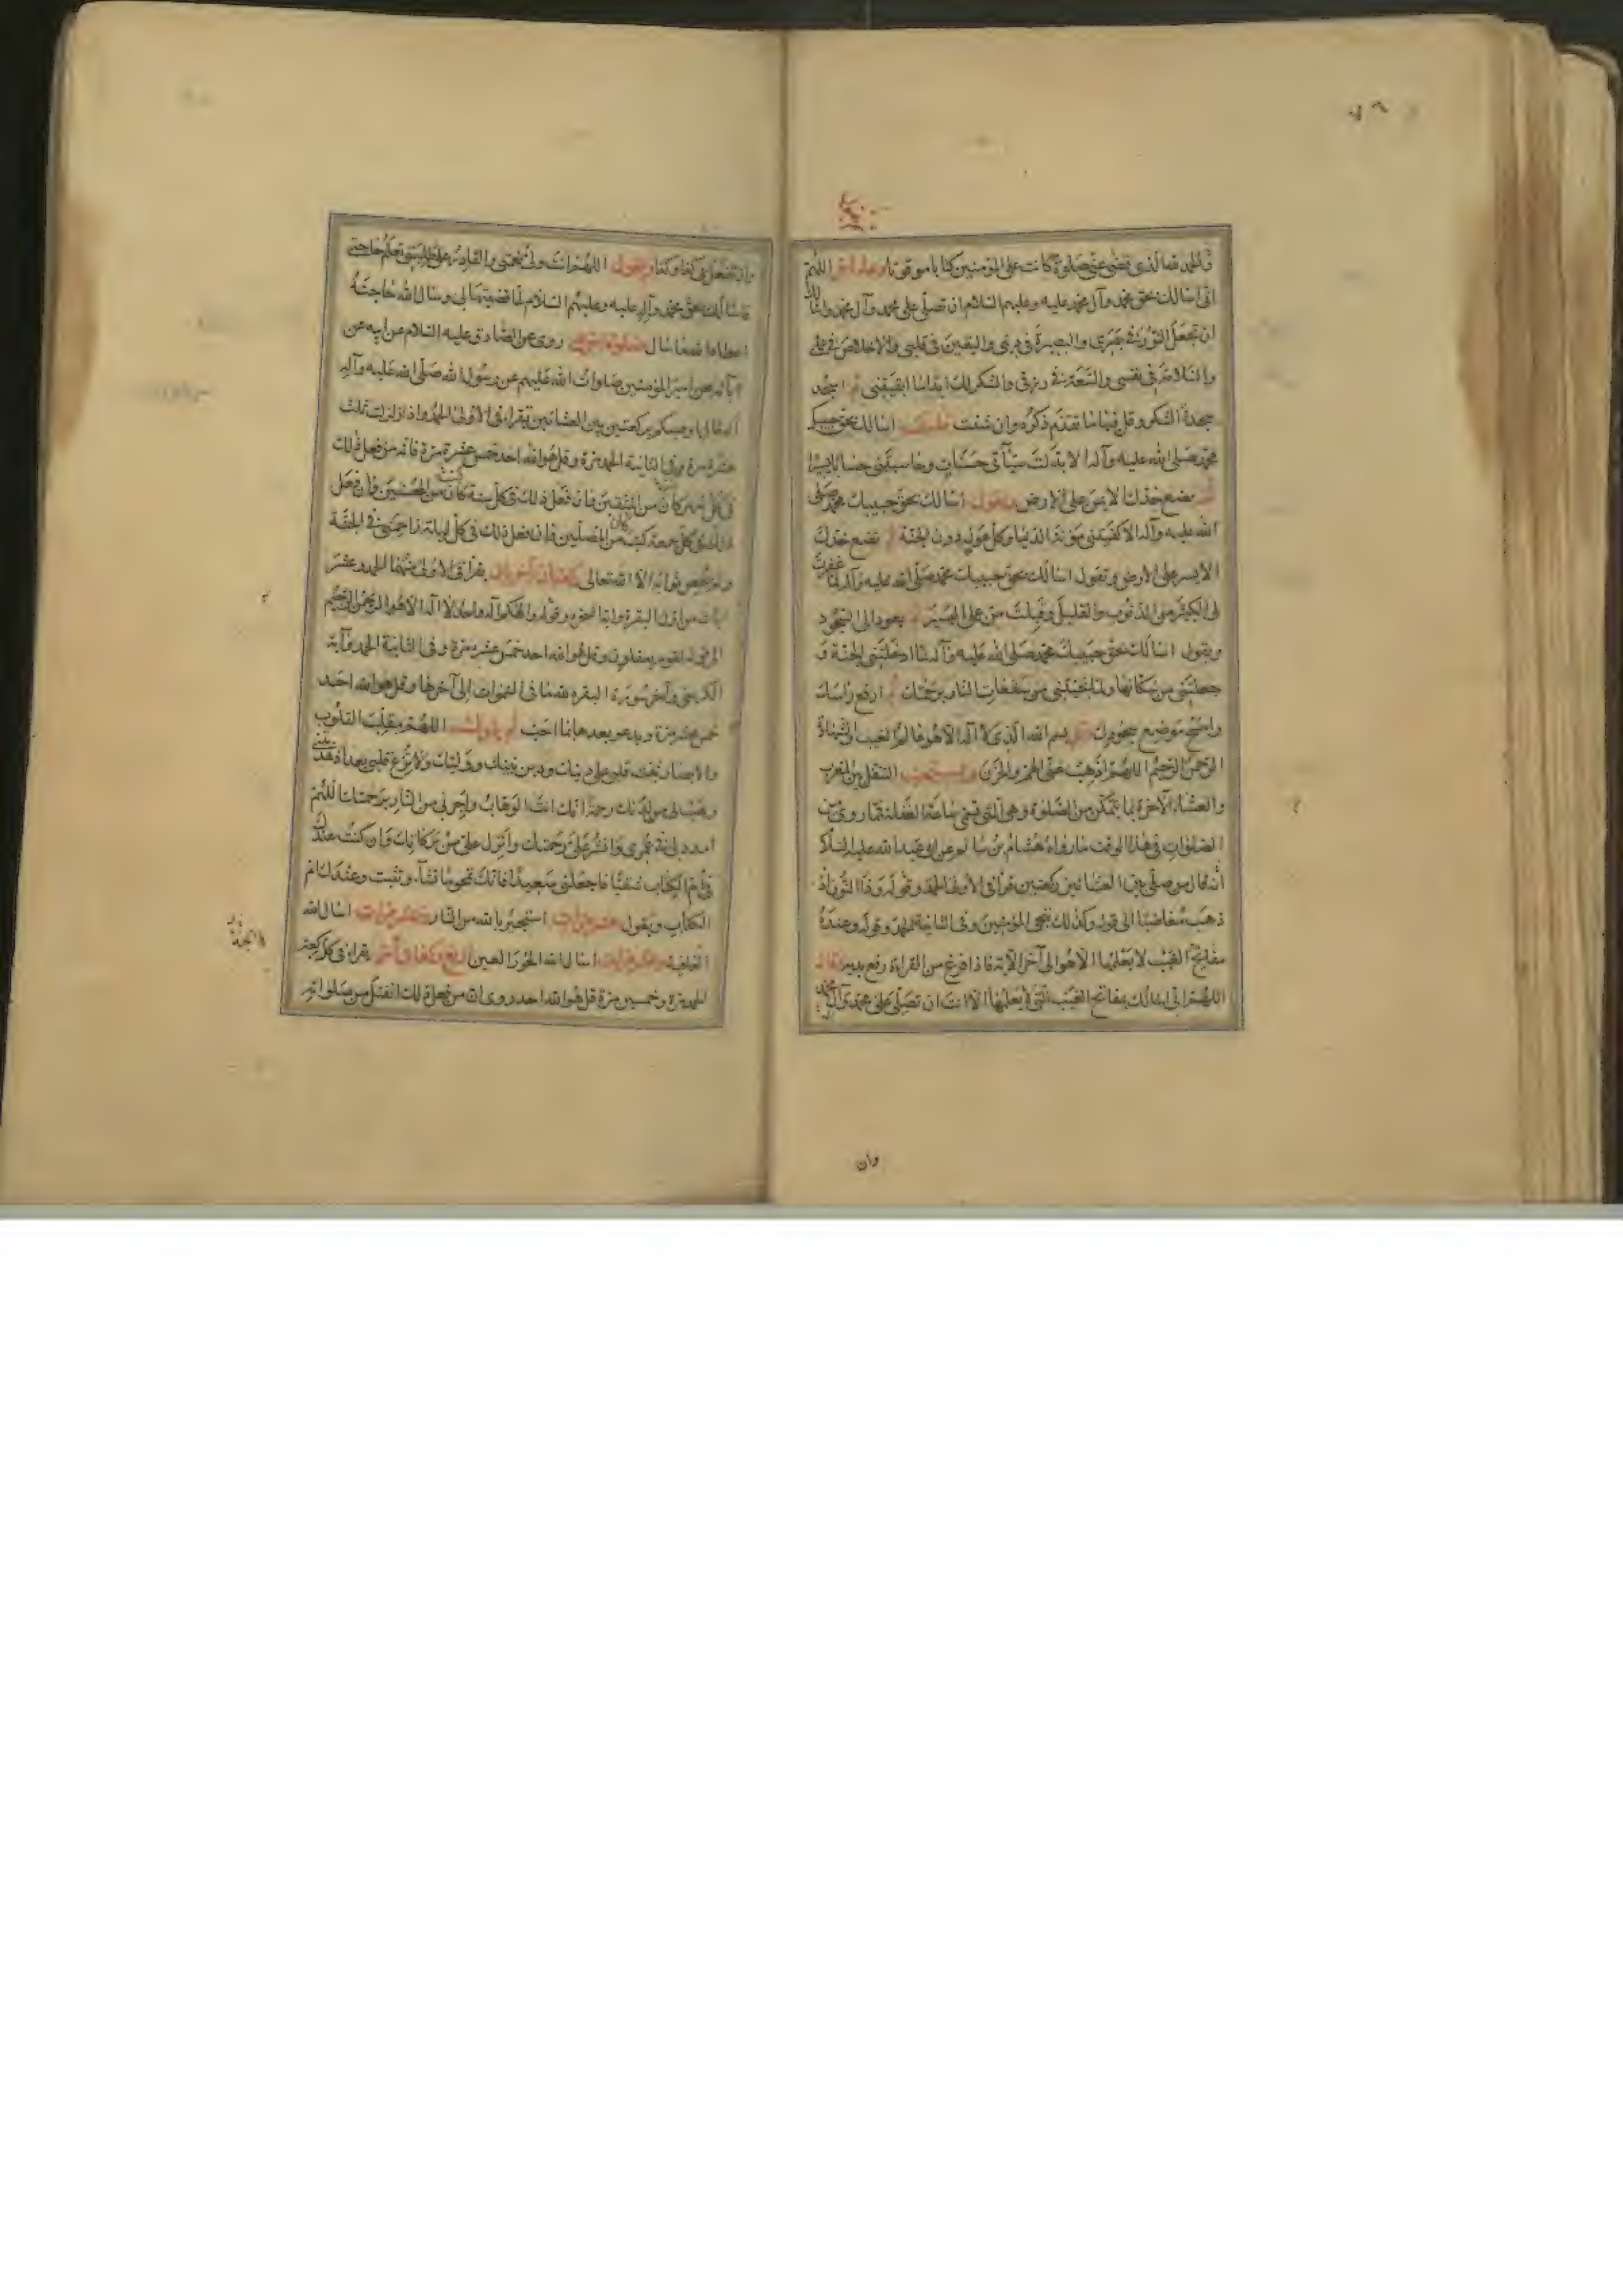 والحمد لله الذي قضى عني صلوة كانت على المؤمنين كتابا موقوتا دعاء آخر اللهم
اني اسالك بحق محمد وآل محمد عليه وعليهم السلام ان تصلي على محمد وآل محمد واسالك
ان تجعل النور في بصري والبصيرة في ديني واليقين في قلبي والاخلاص في عملي
والسلامة في نفسي والسعة في رزقي والشكر لك ابدا ما ابقيتني ثم اسجد
سجدة الشكر وقل فيها ما تقدم ذكره وان شئت قلت اسالك بحق حبيبك
محمد صلى الله عليه وآله الا بدلت سيآتي حسنات وحاسبتني حسابا يسيرا
ثم تضع خدك الايمن على الارض وتقول اسالك بحق حبيبك محمد صلى
الله عليه وآله الا كفيتني مؤنة الدنيا وكل هول دون الجنة ثم تضع خدك
الايسر على الارض وتقول اسالك بحق حبيبك محمد صلى الله عليه وآله لما غفرت
لي الكثير من الذنوب والقليل وقبلت من عملي اليسير ثم يعود الى السجود
ويقول اسالك بحق حبيبك محمد صلى الله عليه وآله لما ادخلتني الجنة و
جعلتني من سكانها ولما نجيتني من سفعات النار برحمتك ثم ارفع راسك
وامسح موضع سجودك وقل بسم الله الذي لا اله الا هو عالم الغيب والشهادة
الرحمن الرحيم اللهم اذهب عني الهم والحزن ويستحب التنفل بين المغرب
والعشاء الآخرة بما يتمكن من الصلوة وهي التي تسمى ساعة الغفلة فمما روي من
الصلوات في هذا الوقت ما رواه هشام بن سالم عن ابي عبد الله عليه السلام
انه قال من صلى بين العشائين ركعتين قرا في الاولى الحمد وقوله وذا النون اذ
ذهب مغاضبا الى قوله وكذلك ننجي المؤمنين وفي الثانية الحمد وقوله وعنده
مفاتح الغيب لا يعلمها الا هو الى آخر الآية فاذا فرغ من القراءة رفع يديه وقال
اللهم اني اسالك بمفاتح الغيب التي لا يعلمها الا انت ان تصلي على محمد وآل محمد
وان
وان تفعل بي كذا وكذا ويقول اللهم انت ولي نعمتي والقادر على طلبتي تعلم حاجتي
فاسالك بحق محمد وآله عليه وعليهم السلام لما قضيتها لي وسال الله حاجته
اعطاه الله ما سال صلوة اخرى روي عن الصادق عليه السلام عن ابيه عن
آبائه عن امير المؤمنين صلوات الله عليهم عن رسول الله صلى الله عليه وآله
انه قال اوصيكم بركعتين بين العشائين يقرا في الاولى الحمد واذا زلزلت ثلث
عشرة مرة وفي الثانية الحمد مرة وقل هو الله احد خمس عشرة مرة فانه من فعل ذلك
في كل شهر كان من المتقين فان فعل ذلك في كل سنة كان من المحسنين فان فعل
ذلك في كل جمعة كتب من المصلين فان فعل ذلك في كل ليلة زاحمني في الجنة
ولم يحص ثوابه الا الله تعالى ركعتان اخريان يقرا في الاولى منهما الحمد وعشر
آيات من اول البقرة وآية السخرة وقوله والهكم اله واحد لا اله الا هو الرحمن الرحيم
الى قوله لقوم يعقلون وقل هو الله احد خمس عشرة مرة وفي الثانية الحمد وآية
الكرسي وآخر سورة البقرة لله ما في السموات الى آخرها وقل هو الله احد
خمس عشرة مرة ويدعو بعدها بما احب ثم يقول اللهم مقلب القلوب
والابصار ثبت قلبي على دينك ودين نبيك ووليك ولا تزغ قلبي بعد اذ هديتني
وهب لي من لدنك رحمة انك انت الوهاب واجرني من النار برحمتك اللهم
امدد لي في عمري وانشر علي رحمتك وانزل علي من بركاتك وان كنت عندك
في ام الكتاب شقيا فاجعلني سعيدا فانك تمحو ما تشآء وتثبت وعندك ام
الكتاب ويقول عشر مرات استجير بالله من النار وعشر مرات اسال الله
الجنة وعشر مرات اسال الله الحور العين اربع ركعات اخر يقرا في كل ركعة
الحمد مرة وخمسين مرة قل هو الله احد روي ان من فعل ذلك انفتل من صلواته